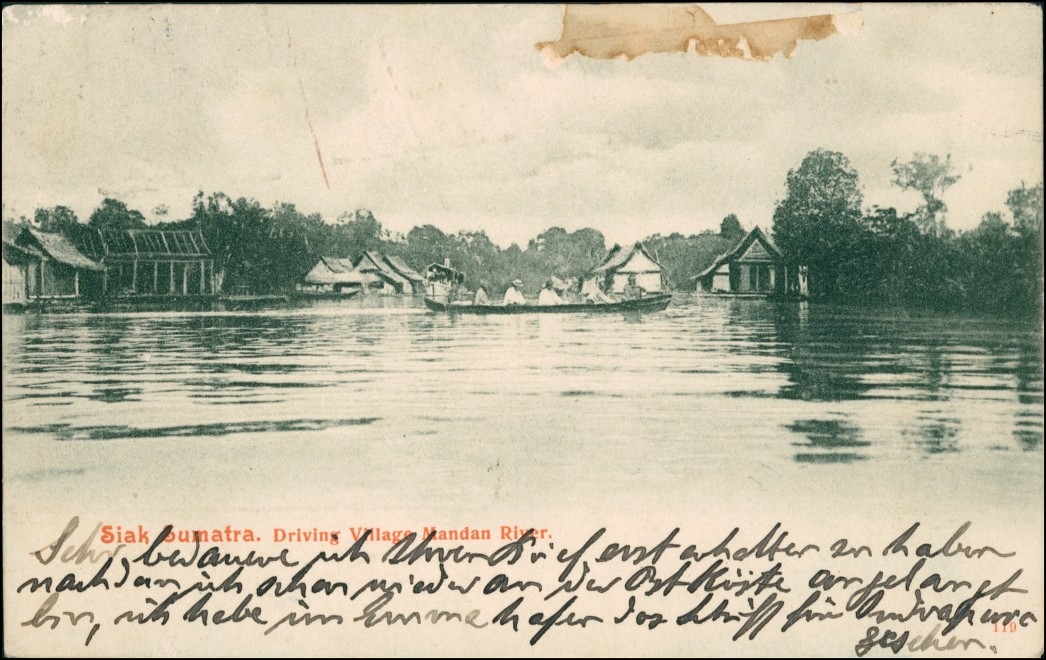 Siak Sumatra. Driving Village Mandan River.
Sehr bedauere ich Ihren Brief erst erhalten zu haben
nachdem ich schon wieder an der Ost Küste angelangt
bin, ich habe im Emma hafen das Schiff für Indrapura
119
gesehen.